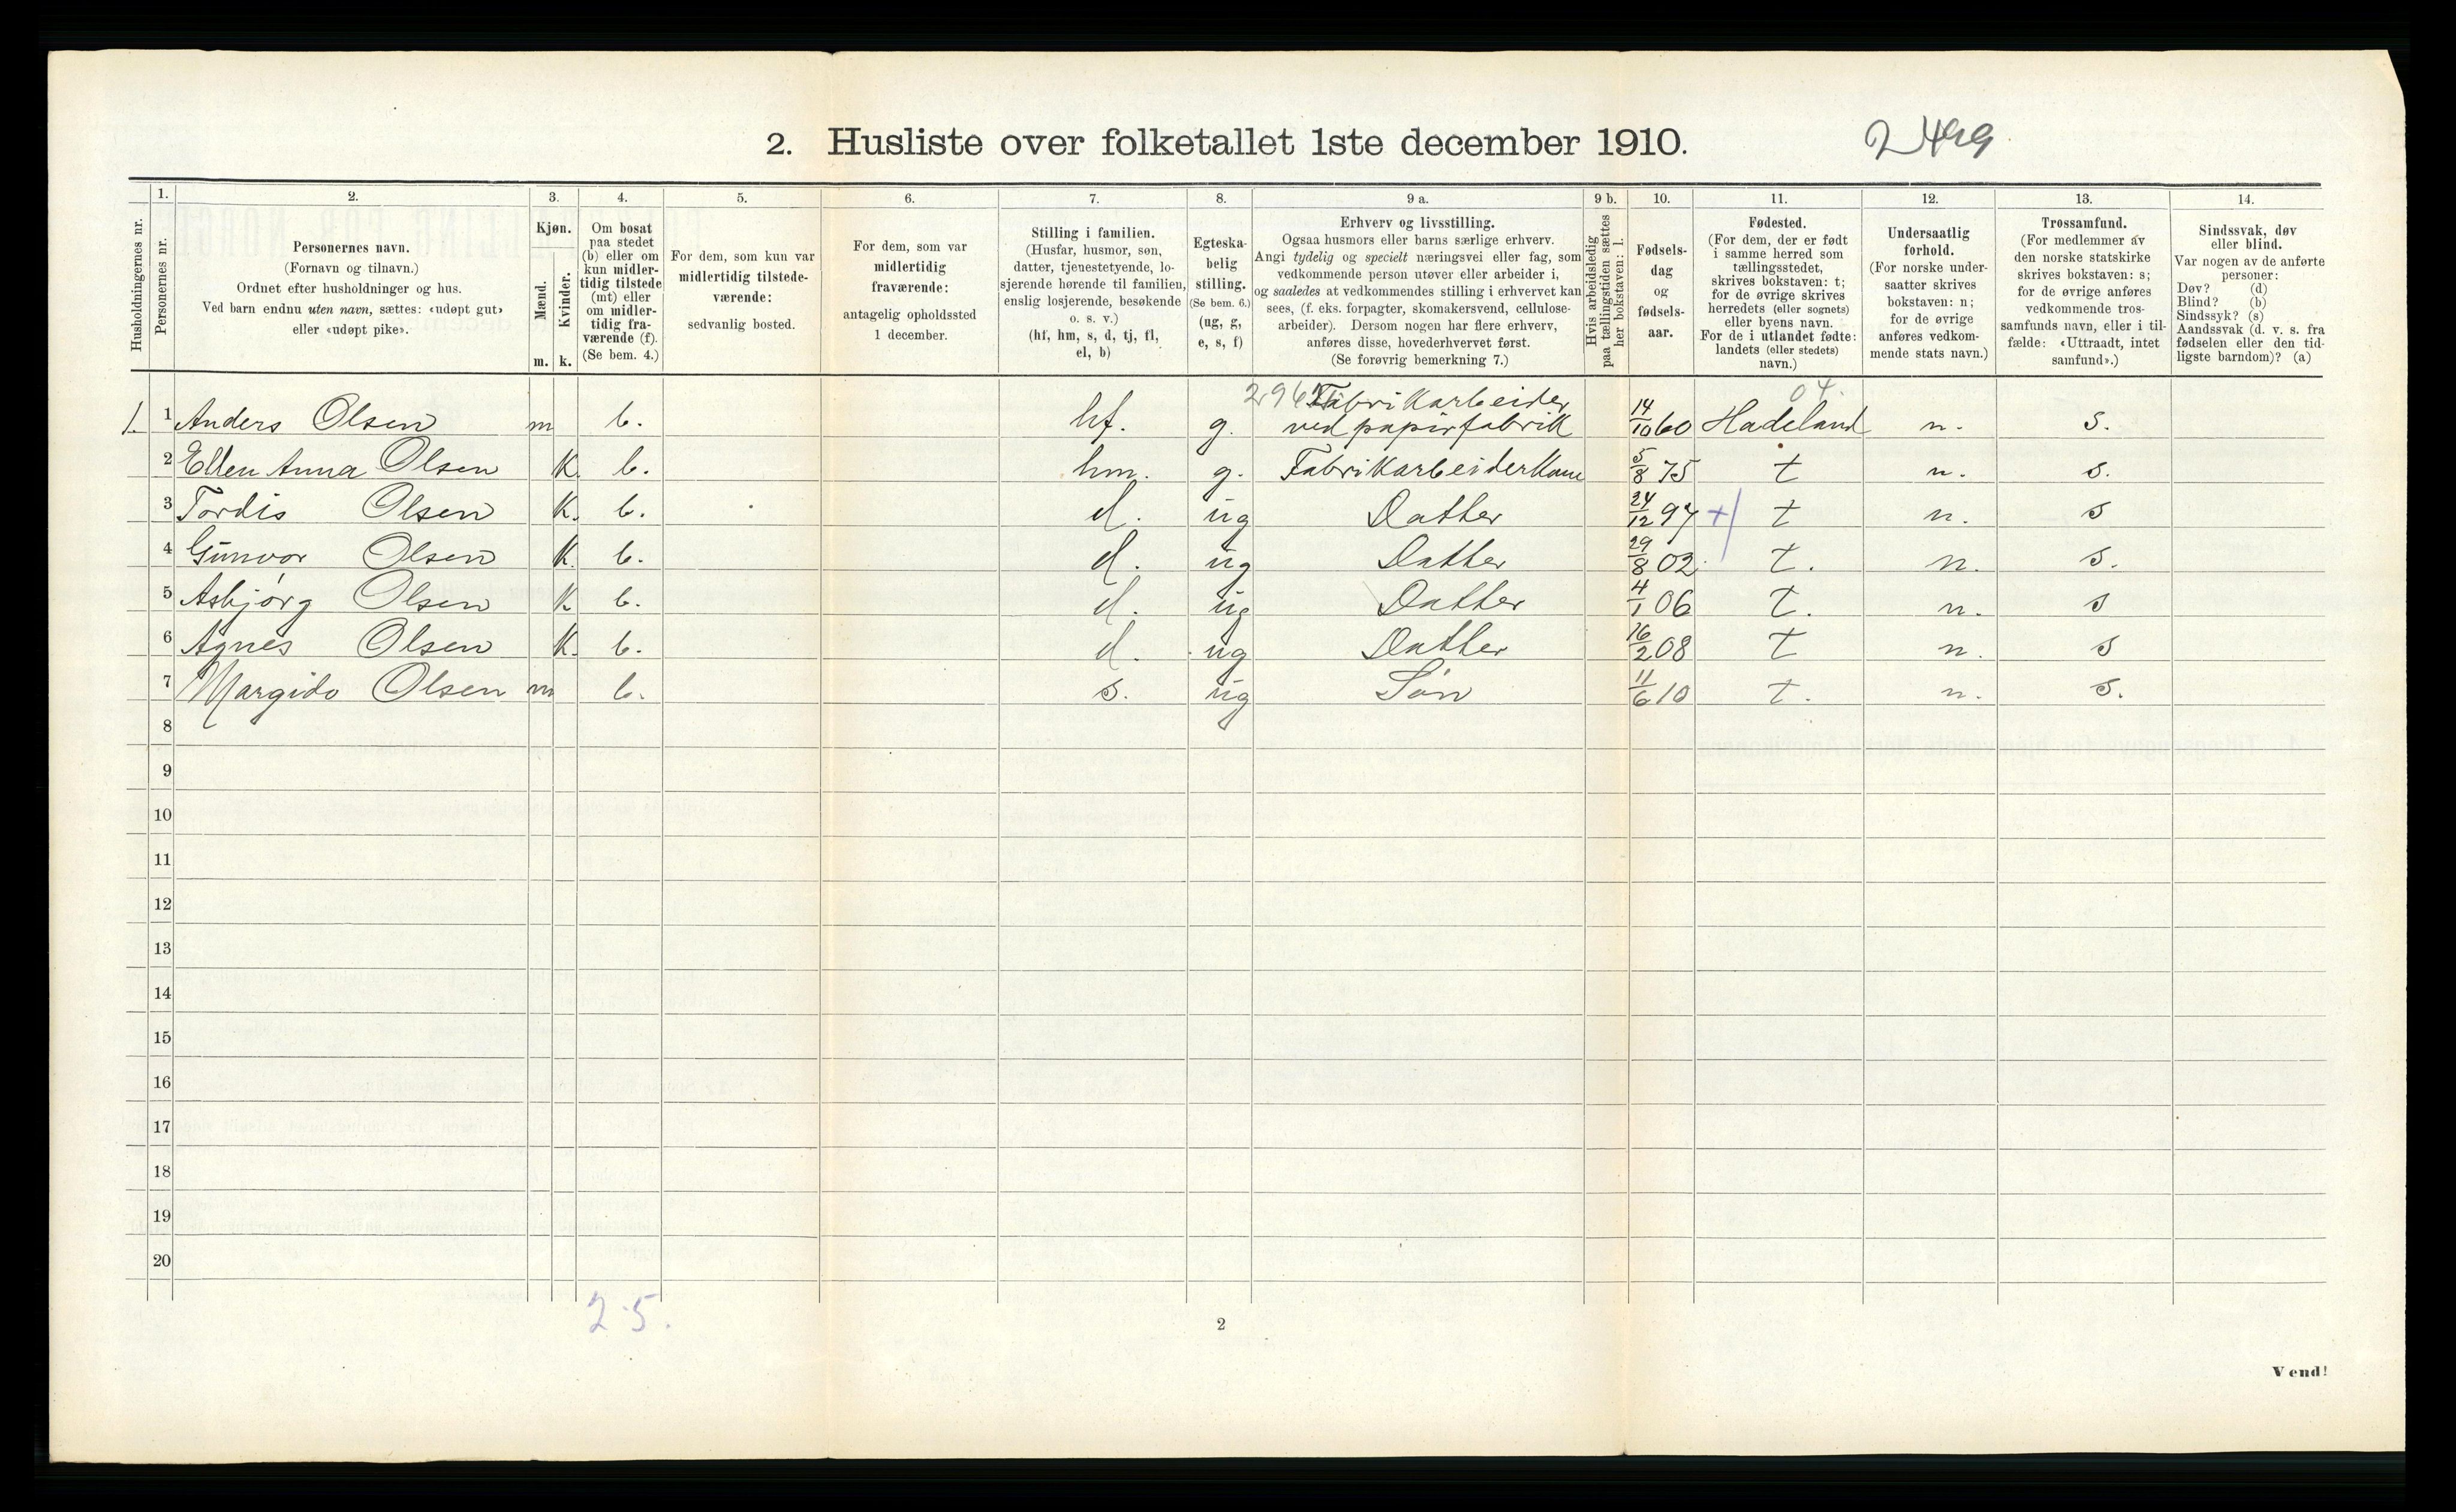 2. Husliste over folketallet 1ste december 1910.
1.
2.
3.
4.
5.
6.
7.
8.
9 a.
9 b.
10.
11.
12.
13.
14.
Husholdningernes nr.
Personernes nr.
Personernes navn.
(Fornavn og tilnavn.)
Ordnet efter husholdninger og hus.
Ved barn endnu uten navn, sættes: «udøpt gut»
eller «udøpt pike».
Kjøn.
Mænd.
Kvinder.
m. k.
Om bosat
paa stedet
(b) eller om
kun midler-
tidig tilstede
(mt) eller
om midler-
tidig fra-
værende (f).
(Se bem. 4.)
For dem, som kun var
midlertidig tilstede-
værende:
sedvanlig bosted.
For dem, som var
midlertidig
fraværende:
antagelig opholdssted
1 december.
Stilling i familien.
(Husfar, husmor, søn,
datter, tjenestetyende, lo-
sjerende hørende til familien,
enslig losjerende, besøkende
o. s. v.)
(hf, hm, s, d, tj, fl,
el, b)
Egteska-
belig
stilling.
(Se bem. 6.)
(ug, g,
e, s, f)
Erhverv og livsstilling.
Ogsaa husmors eller barns særlige erhverv.
Angi tydelig og specielt næringsvei eller fag, som
vedkommende person utøver eller arbeider i,
og saaledes at vedkommendes stilling i erhvervet kan
sees, (f. eks. forpagter, skomakersvend, cellulose-
arbeider). Dersom nogen har flere erhverv,
anføres disse, hovederhvervet først.
(Se forøvrig bemerkning 7.)
Hvis arbeidsledig
paa tællingstiden sættes
her bokstaven: l.
Fødsels-
dag
og
fødsels-
aar.
Fødested.
(For dem, der er født
i samme herred som
tællingsstedet,
skrives bokstaven: t;
for de øvrige skrives
herredets (eller sognets)
eller byens navn.
For de i utlandet fødte:
landets (eller stedets)
navn.)
Undersaatlig
forhold.
(For norske under-
saatter skrives
bokstaven: n;
for de øvrige
anføres vedkom-
mende stats navn.)
Trossamfund.
(For medlemmer av
den norske statskirke
skrives bokstaven: s;
for de øvrige anføres
vedkommende tros-
samfunds navn, eller i til-
fælde: «Uttraadt, intet
samfund».)
Sindssvak, døv
eller blind.
Var nogen av de anførte
personer:
Døv? (d)
Blind? (b)
Sindssyk? (s)
Aandssvak (d. v. s. fra
fødselen eller den tid-
ligste barndom)? (a)
04.
1. 1 Anders Olsen m b. hf. g. Fabrikarbeider
ved papirfabrik 14/10 60 Hadeland n. s.
2 Ellen Anna Olsen K. b. hm. g. Fabrikarbeiderkone 5/8 75 t n. s.
3 Tordis Olsen K. b. d. ug Datter 24/12 97 + t n. s
4 Gunvor Olsen K. b. d. ug Datter 29/8 02 t. n. s.
5 Asbjørg Olsen K b. d. ug Datter 4/1 06 t. n. s
6 Agnes Olsen K. b. d. ug Datter 16/2 08 t n. s
7 Margido Olsen m b. s. ug Søn 11/6 10 t. n. s.
8
9
10
11
12
13
14
15
16
17
18
19
20
2.5.
2
Vend!